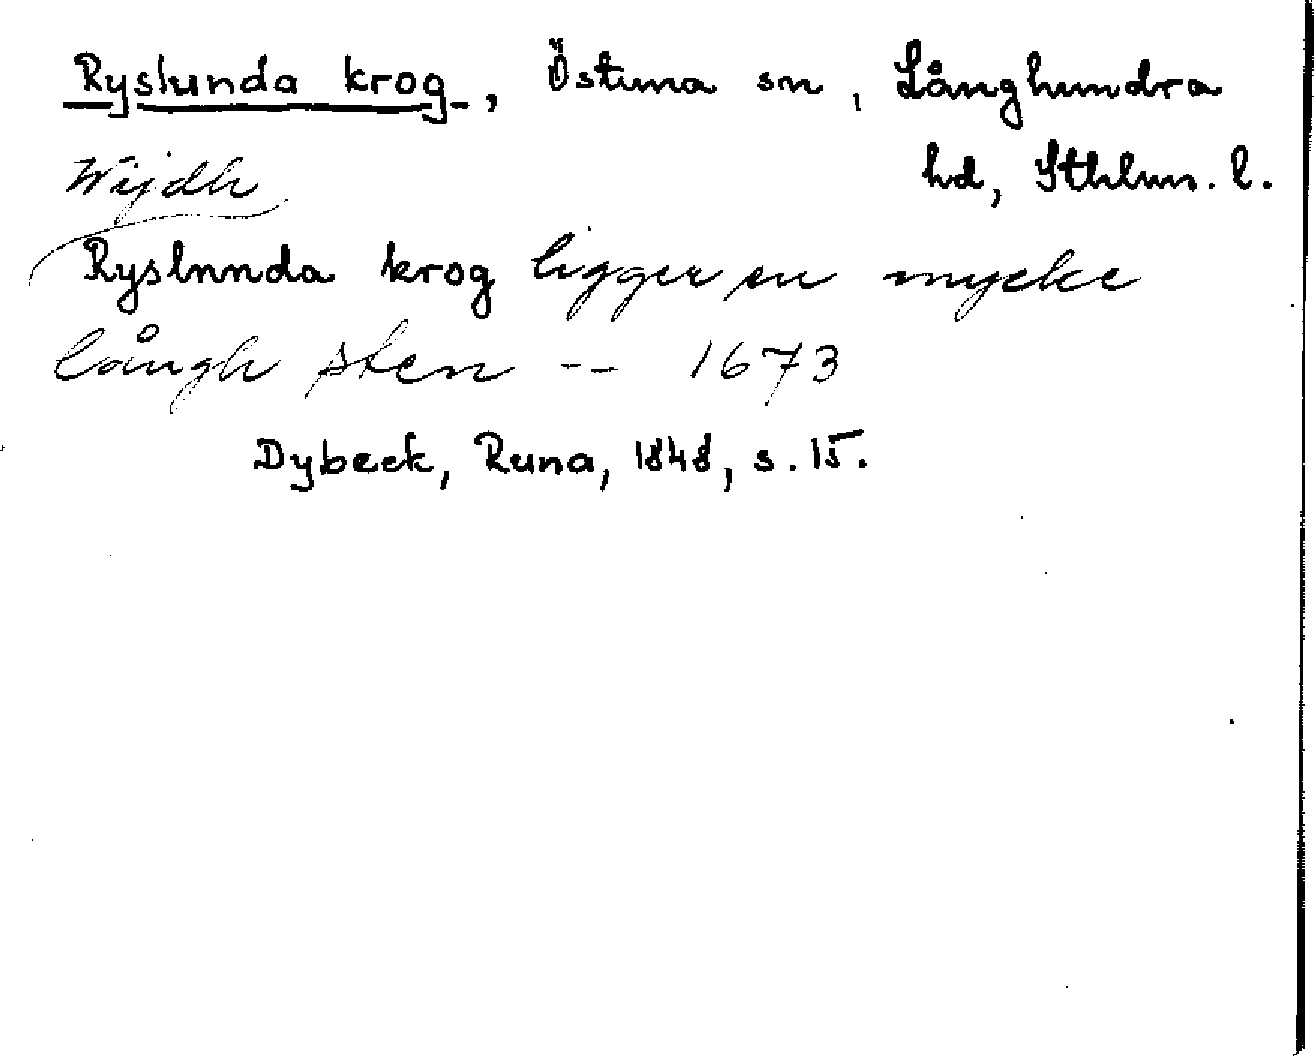 Ryslunda krog, Östuna sn, Långhundra
hd, Sthlms. l.
Wijdh
Ryslnnda krog ligger en mycke
långh sten -- 1673
Dybeck, Runa, 1848, s. 15.